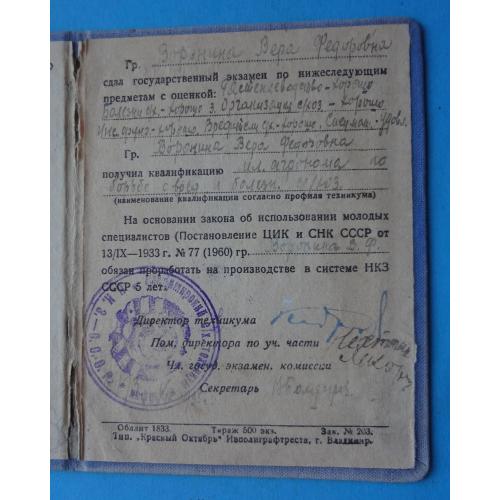 Гр. Воронина Вера Федоровна
сдал государственный экзамен по нижеследующим
предметам с оценкой: Растениеводство - хорошо
Болезни с-х. - хорошо з. Организация с/хоз - хорошо
хорошо, Вредители с-х. - хорошо, Спецмаш. - Удовл.
Гр. Воронина Вера Федоровна
получил квалификацию мл. агронома по
борьбе с вред и болезн.
(наименование квалификации согласно профиля техникума)
На основании закона об использовании молодых
специалистов (Постановление ЦИК и СНК СССР от
13/IX—1933 г. № 77 (1960) гр. Воронина В. Ф.
обязан проработать на производстве в системе НКЗ
СССР 5 лет.
Директор техникума
Пом. директора по уч. части
Чл. госуд. экзамен. комиссии
Секретарь
Обллит 1833. Тираж 500 экз. Зак. № 203.
Тип. „Красный Октябрь" Ивполиграфтреста, г. Владимир.